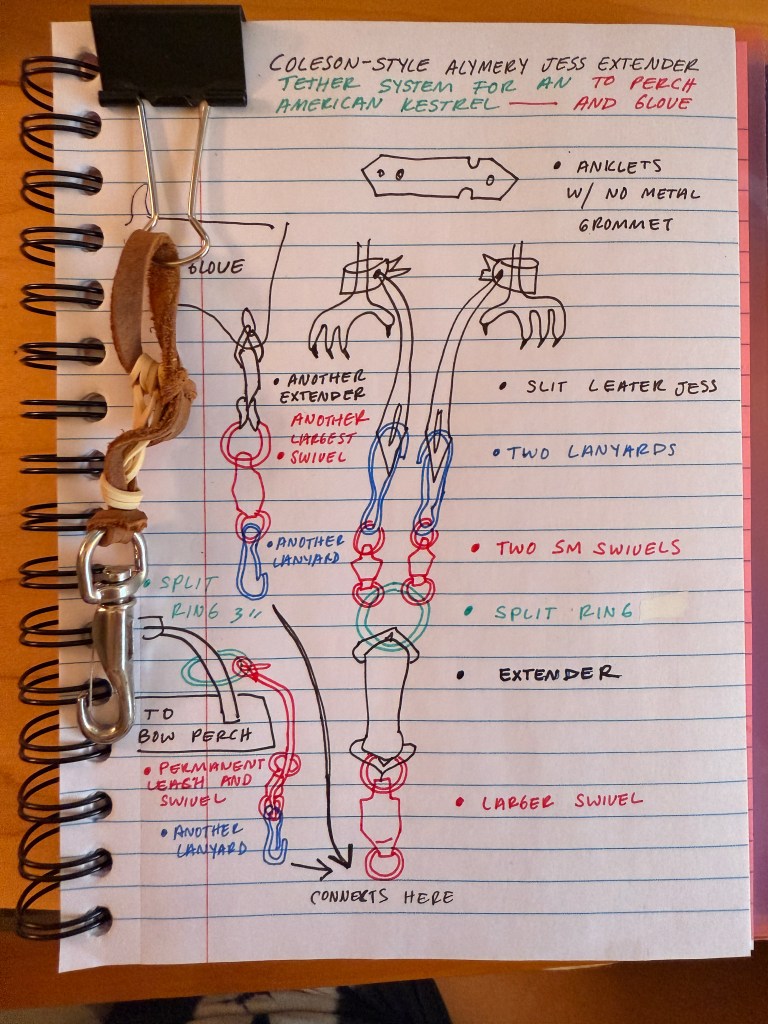 COLESON-STYLE ALYMERY JESS EXTENDER
TETHER SYSTEM FOR AN TO PERCH
AMERICAN KESTREL — AND GLOVE
• ANKLETS
W/ NO METAL
GROMMET
GLOVE
• ANOTHER
EXTENDER
ANOTHER
LARGEST
• SWIVEL
• SLIT LEATER JESS
• TWO LANYARDS
• ANOTHER
LANYARD
• TWO SM SWIVELS
• SPLIT
RING 3"
• SPLIT RING
• EXTENDER
TO
BOW PERCH
• PERMANENT
LEASH AND
SWIVEL
• ANOTHER
LANYARD
• LARGER SWIVEL
CONNECTS HERE